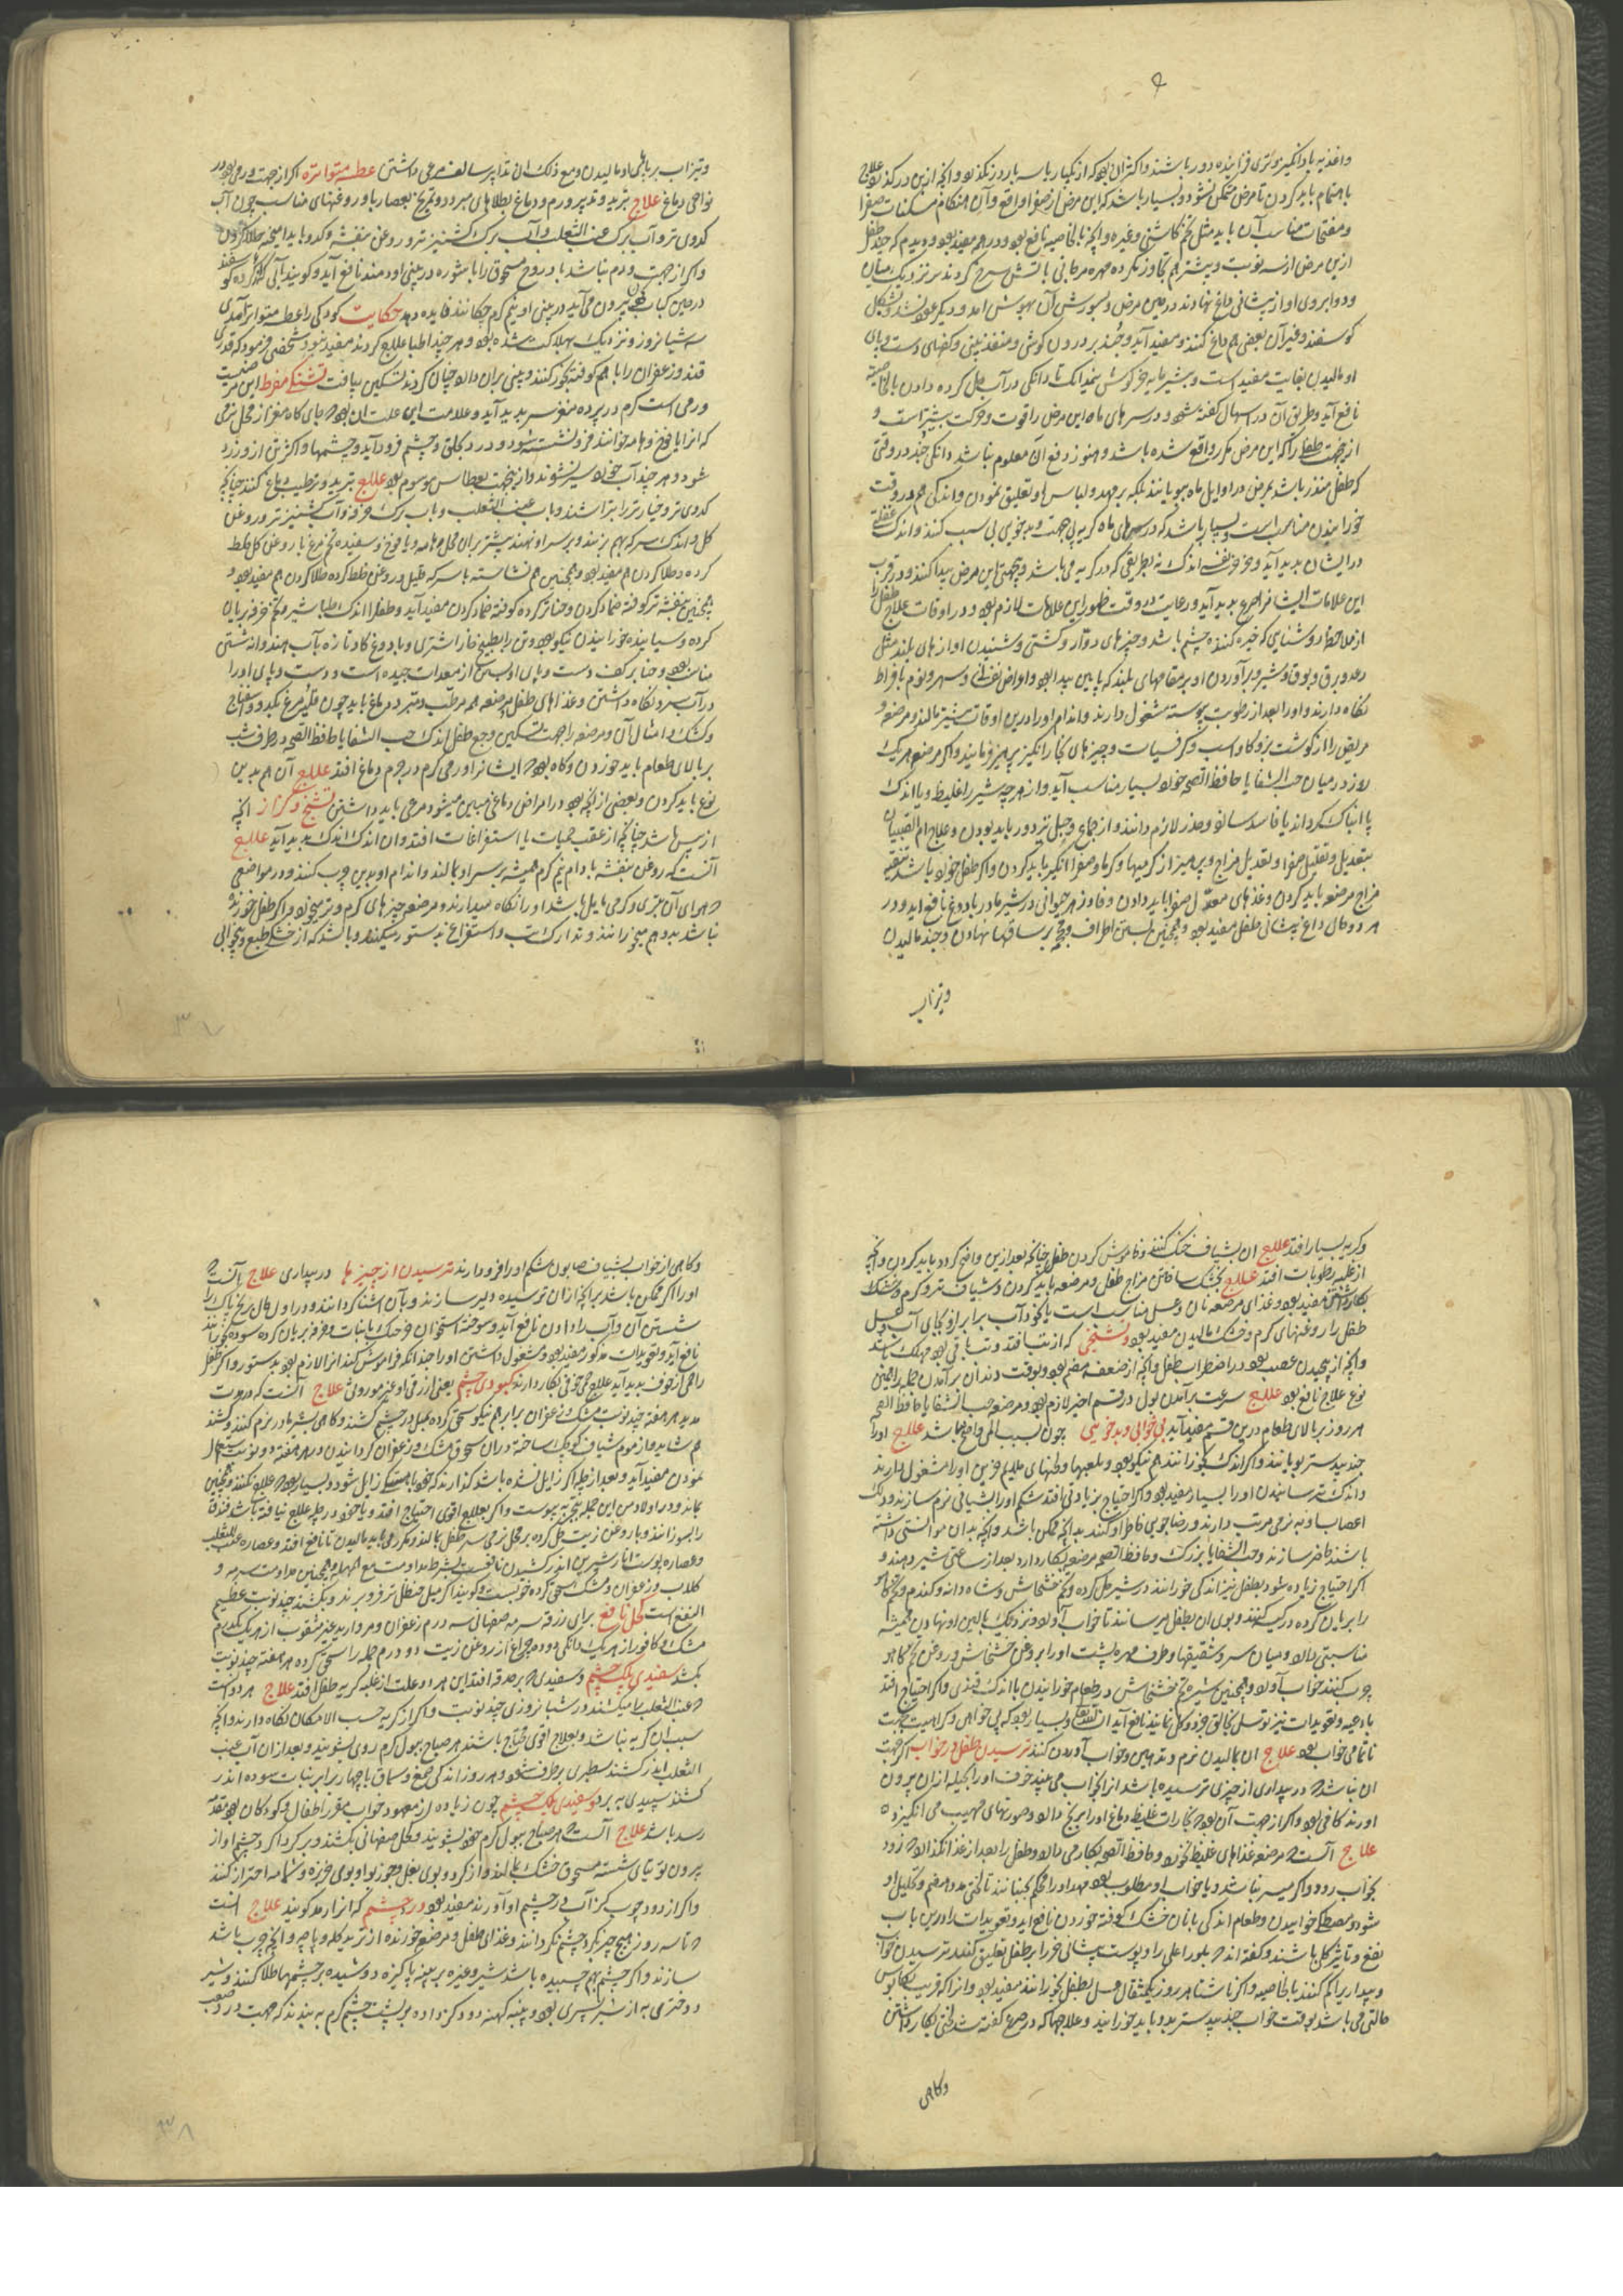 واغذیه بادانگیز و تری فزاینده دور باشند و اکثر آن بود که از یکبار یا سه بار در نگذرد و آنچه ازین درگذرد علاج
باهتمام باید کردن تا مرض متمکن نشود و بسیار باشد که این مرض از صفرا واقع و آن هنگام مسکنات صفرا
و مفتحات مناسب آن باید مثل تخم کاسنی و غیره و آنچه بالخاصیه نافع بود در همه مفید بود و دیدم که چند طفل
ازین مرض از سه نوبت و بیشتر هم تجاوز نکرده مهره مرجانی باتش سرخ کردند و نزدیک میان
و دو ابروی او از پیشانی داغ نهادند در عین مرض و بسوزش آن بهوش آمد و دیگر عود نشد و بشکل
کوسفند و غیر آن بعضی هم داغ کنند و مفید آید و جند بر درون کوش و منفذ بینی و کفهای دست و پای
او مالیدن بغایت مفید است و پنیرمایه خرکوش نیم دانک تا دانکی در آب حل کرده دادن بالخاصیه
نافع آید و طریق آن در اسهال گفته شود و در سرهای ماه این مرض را قوت و حرکت بیشتر است و
ازین جهت طفلی را که این مرض مکرر واقع شده باشد و هنوز دفع آن معلوم نباشد دانکی جند در وقتی
که طفل منذر باشد بمرض در اوایل ماه ببویانند بلکه بر مهد و لباس او تعلیق نمودن و اندکی هم در وقت
خورانیدن مناسب است و بسیار باشد که در سرهای ماه کریه بی جهت و بدخویی بی سبب کنند و اندک غفلتی
در ایشان پدید آید و خرخر نفسی اندک نه بطریقی که در کریه می باشد و بجهتی این مرض پیدا کنند و در قرب
این علامات ایشانرا صرع پدید آید و رعایت در وقت ظهور این علامات لازم بود و در اوقات علاج طفل را
از ملاحظه روشنایی که خیره کننده چشم باشد و چیزهای دوار و کشتی و شنیدن آوازهای بلند مثل
رعد و برق و بوق و شیر و برآوردن او بر مقامهای بلند که پایین پیدا بود و اعراض نفسانی و سهر و نوم بافراط
نکاه دارند و او را بعد از رطوبت پیوسته مشغول دارند و اندام او را درین اوقات بیشتر مالند و مرضعه و
مریض را از کوشت بز و کاو و اسب و کرفسیات و چیزهای بخارانکیز پرهیز فرمایند و اگر مرضعه هر یک
روز در میان حب الشفا یا حافظ الصحه خورد بسیار مناسب آید و از هرچه شیر را غلیظ و یا اندک
یا ابناک کرداند یا فاسد سازد و حذر لازم دانند و از جماع و حبل نیز دور باید بودن و علاج ام الصبیان
بتعدیل و تقلیل صفرا و تعدیل مزاج و پرهیز از کرمیها و کرما و صفرا انکیز باید کردن و اگر طفل خوار باشد تنقیه
مزاج مرضعه باید کردن و غذاهای معدل صفرا باید دادن و فادزهر حیوانی در شیر مادر یا دوغ نافع آید و در
هر دو حال داغ پیشانی طفل مفید بود و همچنین بستن اطراف و محجمه بر ساقها نهادن و جند مالیدن
وتیزاب
وتیزاب بر پاهای او مالیدن و مع ذلک ان تدابیر سالفه مرعی داشتن عطسه متواتره اگر از جهت ورمی بود در
نواحی دماغ علاج تبرید و تدبیر ورم و دماغ بطلاهای مبرد و تمریخ بعصاره یا و روغنهای مناسب چون آب
کدوی تر و آب برک عنب الثعلب و آب برک کشنیز تر و روغن بنفشه و کدو باید امیخته طلا کردن
و اگر از جهت ورم نباشد بادروج مسحوق را با شوره در بینی او دمند نافع آید و کویند آبی که از کرده کوسفند
در حین کباب کردن بیرون می آید در بینی او نیم کرم چکانند فایده دهد حکایت کودکی را عطسه متواتر آمدی
سه شبانروز و نزدیک بهلاکت شده بود و هر چند اطبا علاج کردند مفید نبود شخصی فرمود که قدری
قند و زعفران را با هم کوفته بخور کنند و بینی بران دارد چنان کردند تسکین یافت تشنکی مفرط این مرض
ورمی است کرم در پرده مغز سر پدید آید و علامت این علت آن بود که جای کاه مغز از محل نرمی
که انرا یافوخ و هامه خوانند فرو نشسته شود و درد بکلتی و چشم فرود آید و چشمها و اکثر تن او زرد
شود و هر چند آب خورد سیر نشود و ازین جهت بعطاس موسوم بود علاج تبرید و ترطیب دماغ کنند چنانچه
کدوی تر و خیار تر را بتراشند و باب عنب الثعلب و باب برک خرفه و آب کشنیز تر و روغن
کل و اندک سرکه بهم بزنند و بر سر او نهند بیشتر بران محل هامه و یافوخ و سفیده تخم مرغ با روغن کل خلط
کرده طلا کردن هم مفید بود و همچنین هم نشاسته با سرکه قلیل و روغن خلط کرده طلا کردن هم مفید بود و
همچنین بنفشه تر کوفته ضماد کردن و حنا تر کرده کوفته ضماد کردن مفید آید و طفل را اندک طباشیر و تخم خرفه بریان
کرده و سائیده خورانیدن نیکو بود و تن را بطبیخ خار اشتری و یا دوغ کاو تازه یا آب هندوانه شستن
مناسب بود و حنا بر کف دست و پای او بستن از معدات جیده است و دست و پای او را
در آب سرد نکاه داشتن و غذاهای طفل و مرضعه هم مرطب و مبرد دماغ باید چون قلیه مرغ بکدو و اسفناج
و کشک و امثال آن و مرضعه را جهت تسکین وجع طفل اندک حب الشفا یا حافظ الصحه در طرف شب
بر بالای طعام باید خوردن و کاه بود که ایشانرا ورمی کرم در جرم دماغ افتد علاج آن هم بدین
نوع باید کردن و بعضی از آنچه بود در امراض دماغی مبین میشود مرعی باید داشتن تشنج و کزاز آنچه
از یبس باشد چنانچه از عقب حمیات یا استفراغات افتد و ان اندک اندک پدید آید علاج
آنست که روغن بنفشه بادام نیم کرم همیشه بر سر او مالند و اندام او بدین چرب کنند و در مواضعی
که هوای آن بتری و کرمی مایل باشد او را نکاه میدارند و مرضعه چیزهای کرم و تر میخورد و اگر طفل خورنده
نباشد بدو هم میخورانند و تدارک تب و استفراغ نیز بدستور میکنند و باشد که از خشکی طبع و بیخوابی
۳۷
و کریه بسیار افتد علاج ان بشیاف خنک کنند و خاموش کردن طفل چنانچه بعد ازین واضح کردد باید کردن و آنچه
از غلبه رطوبات افتد علاج بخشک ساختن مزاج طفل و مرضعه باید کردن و شیاف تر و کرم و خشک
بکار داشتن مفید بود و غذای مرضعه نان و عسل مناسب است یا نخود آب برابر او بجای آب و عسل
طفل را روغنهای کرم و خشک مالیدن مفید بود و تشنجی که از تب افتد و تب باقی بود مهلک باشد
و آنچه از پیچیدن عصب بود در اضطراب طفل و آنچه از ضعف هضم بود و بوقت دندان برآمدن جمله را همین
نوع علاج نافع بود علاج سرعت برآمدن بول در قسم اخیر لازم بود و مرضعه حب الشفا یا حافظ الصحه
هر روز بر بالای طعام درین قسم مفید آید بی خوابی و بدخویی چون بسبب المی واضح نباشد علاج او را
جندبیدستر بویانند و اگر اندک بخورانند هم نیکو بود و بلعبها و لحنهای ملایم حزین او را مشغول دارند
و اندک ترسانیدن او را بسیار مفید بود و اگر احتیاج بزیادتی افتد شکم او را بشیافی نرم سازند و دلک
اعصاب او به نرمی مرتب دارند و رضاجویی خاطر او کنند بدانچه ممکن باشد و آنچه بدان موانستی داشته
باشند حاضر سازند و حب الشفا یا بزرک و حافظ الصحه مرضعه بکار دارد بعد از ساعتی شیر دهند و
اگر احتیاج زیاده شود بطفل نیز اندکی خورانند در شیر حل کرده و تخم خشخاش و شاه دانه و کندم و تخم کاهو
را بریان کرده در کیسه کنند و بوی ان بطفل میرسانند تا خواب آورد و نزدیک بالین او نهادن همیشه
مناسبتی دارد و میان سر و شقیقها و طرف مهره پشت او را بروغن خشخاش و روغن تخم کاهو
چرب کنند خواب آورد و همچنین شیره تخم خشخاش در طعام خورانیدن با اندک قندی و اگر احتیاج افتد
بادعیه و تعویذات نیز توسل بخالق جزو و کل نمایند نافع آید ان شاء الله و بسیار بود که بی خوابی و کراهیت جهت
ناتمامی خواب بود علاج ان بمالیدن نرم و تدهین و خواب آوردن کنند ترسیدن طفل در خواب اگر جهت
ان نباشد که در بیداری از چیزی ترسیده باشد انرا بخواب می بیند خوف او را بحیله از ان بیرون
آورند کافی بود و اگر از جهت آن بود که بخارات غلیظ دماغ او را برنج دارد و صورتهای مهیب می انکیزد
علاج آنست که مرضعه غذاهای غلیظ نخورد و حافظ الصحه بکار می دارد و طفل را بعد از غذا نکذارد که زود
بخواب رود و اگر میسر نباشد و یا خواب او مطلوب بود مهد او را محکم بجنبانند تا لختی مدد هضم و تحلیل او
شود و مصطکی خوابیدن و طعام اندکی با نان خشک کوفته خوردن نافع آید و تعویذات را درین باب
نفع و تاثیر کلی باشد و گفته اند که بلور اعلی را و پوست پیشانی خر را بر طفل تعلیق کنند ترسیدن خواب
و بیدار را کم کنند بالخاصیه و اگر ناشتا هر روز یکمثقال عسل بطفل بخورانند مفید بود و انرا که قریب بکابوس
حالتی می باشد بوقت خواب جندبیدستر بدو باید خورانید و علاجها که در صرع گفته شد لختی بکار داشتن
وکاهی
وکاهی از خواب بشیاف صابون شکم او را فرود دارند ترسیدن از چیزها در بیداری علاج آنست که
او را اگر ممکن باشد بر آنچه از ان ترسیده دلیر سازند و بآن آشنا کردانند و در اول حال
شستن آن و آب را دادن نافع آید و سوخته استخوان با نبات و مغز بریان کرده سوده بخورانند
نافع آید و تعویذات مذکور مفید بود و مشغول داشتن او را چندانکه فراموش کند انرا لازم بود بدستور و اگر طفل
را حمی از خوف پدید آید علاج حمی خوفی بکار دارند کبودی چشم یعنی ازرقی او غیر موروثی علاج آنست که در مدت
مدید هر هفته چند نوبت مشک و زعفران برابر هم نیکو سحق کرده بمیل در چشم کشند و کاهی بشیر مادر نرم کنند و کشند
هم شاید و از موم شیاف کوچک ساخته در ان سحوق مشک و زعفران کردانیدن در هر هفته دو نوبت استعمال
نمودن مفید آید و بعد از چله اگر زایل نشده باشد کذارند که خود باهستکی زایل شود و بسیار بود که علاج نکنند و همچنین
بماند و در اولاد من این جمله بتجربه پیوست و اگر بعلاج اقوی احتیاج افتد و یا خود در چله علاج نیافته باشد فندق
را بسوزانند و با روغن زیت حل کرده بر محل نرمی سر طفل بمالند و مکرر می باید مالیدن تا نافع افتد و عصاره عنب الثعلب
و عصاره پوست انار شیرین اندر کشیدن نافعست بشرط مداومت مع المهله و همچنین مداومت سرمه و
کلاب و زعفران و مشک سحق کرده خوبست و کویند اگر میل حنظل تر فرو برند و بکشند چند نوبت عظیم
النفع است کحل نافع برای زرقه سرمه صفهانی سه درم زعفران و مروارید غیر مثقوب از هر یک یکدرم
مشک و کافور از هر یک دانکی دوده چراغ از روغن زیت دو درم جمله را سحق کرده هر هفته چند نوبت
بکشند سفیدی پلک چشم و سفیدی که بر حدقه افتد این هر دو علت از غلبه کریه طفل افتد علاج هر دو آنست
که عنب الثعلب را میکشند در شبانروزی چند نوبت و اگر از کریه حسب الامکان نکاه دارند و آنچه
سبب ان کریه نباشد و بعلاج اقوی محتاج باشند هر صباح ببول کرم روی بشویند و بعد از ان آب عنب
الثعلب اندر کشند سطبری برطرف شود و هر روز اندکی صمغ و سماق با چهار برابر نبات سوده اندر
کشند سپیدی ببرد و سفیدی پلک چشم چون زیاده از معهود خواب مقرر اطفال و کودکان بود بتقدم
رسد باشد علاج آنست که هر صباح ببول کرم خود بشویند و کحل صفهانی بکشند و بر کرداکرد چشم او از
بیرون توتیای شسته مسحوق خشک بمالند و از کرد و بوی بغل و جوز بوا و بوی خربزه و شمامه احتراز کنند
و اگر از دود چوب کز آب در چشم او آورند مفید بود درد چشم که انرا رمد کویند علاج آنست
که تا سه روز هیچ چیز بکرد چشم نکردانند و غذای طفل و مرضعه خورنده از ترید کله و پاچه و آنچه چرب باشد
سازند و اگر چشم بهم چسبیده باشد شیر و غیره بر پنبه پاکیزه دوشیده بر چشمها طلا کنند و شیر
دختر می به از شیر پسری بود و پنبه کهنه دود کز داده بر پشت چشم کرم به بندند که جهت درد صعب
۳۸